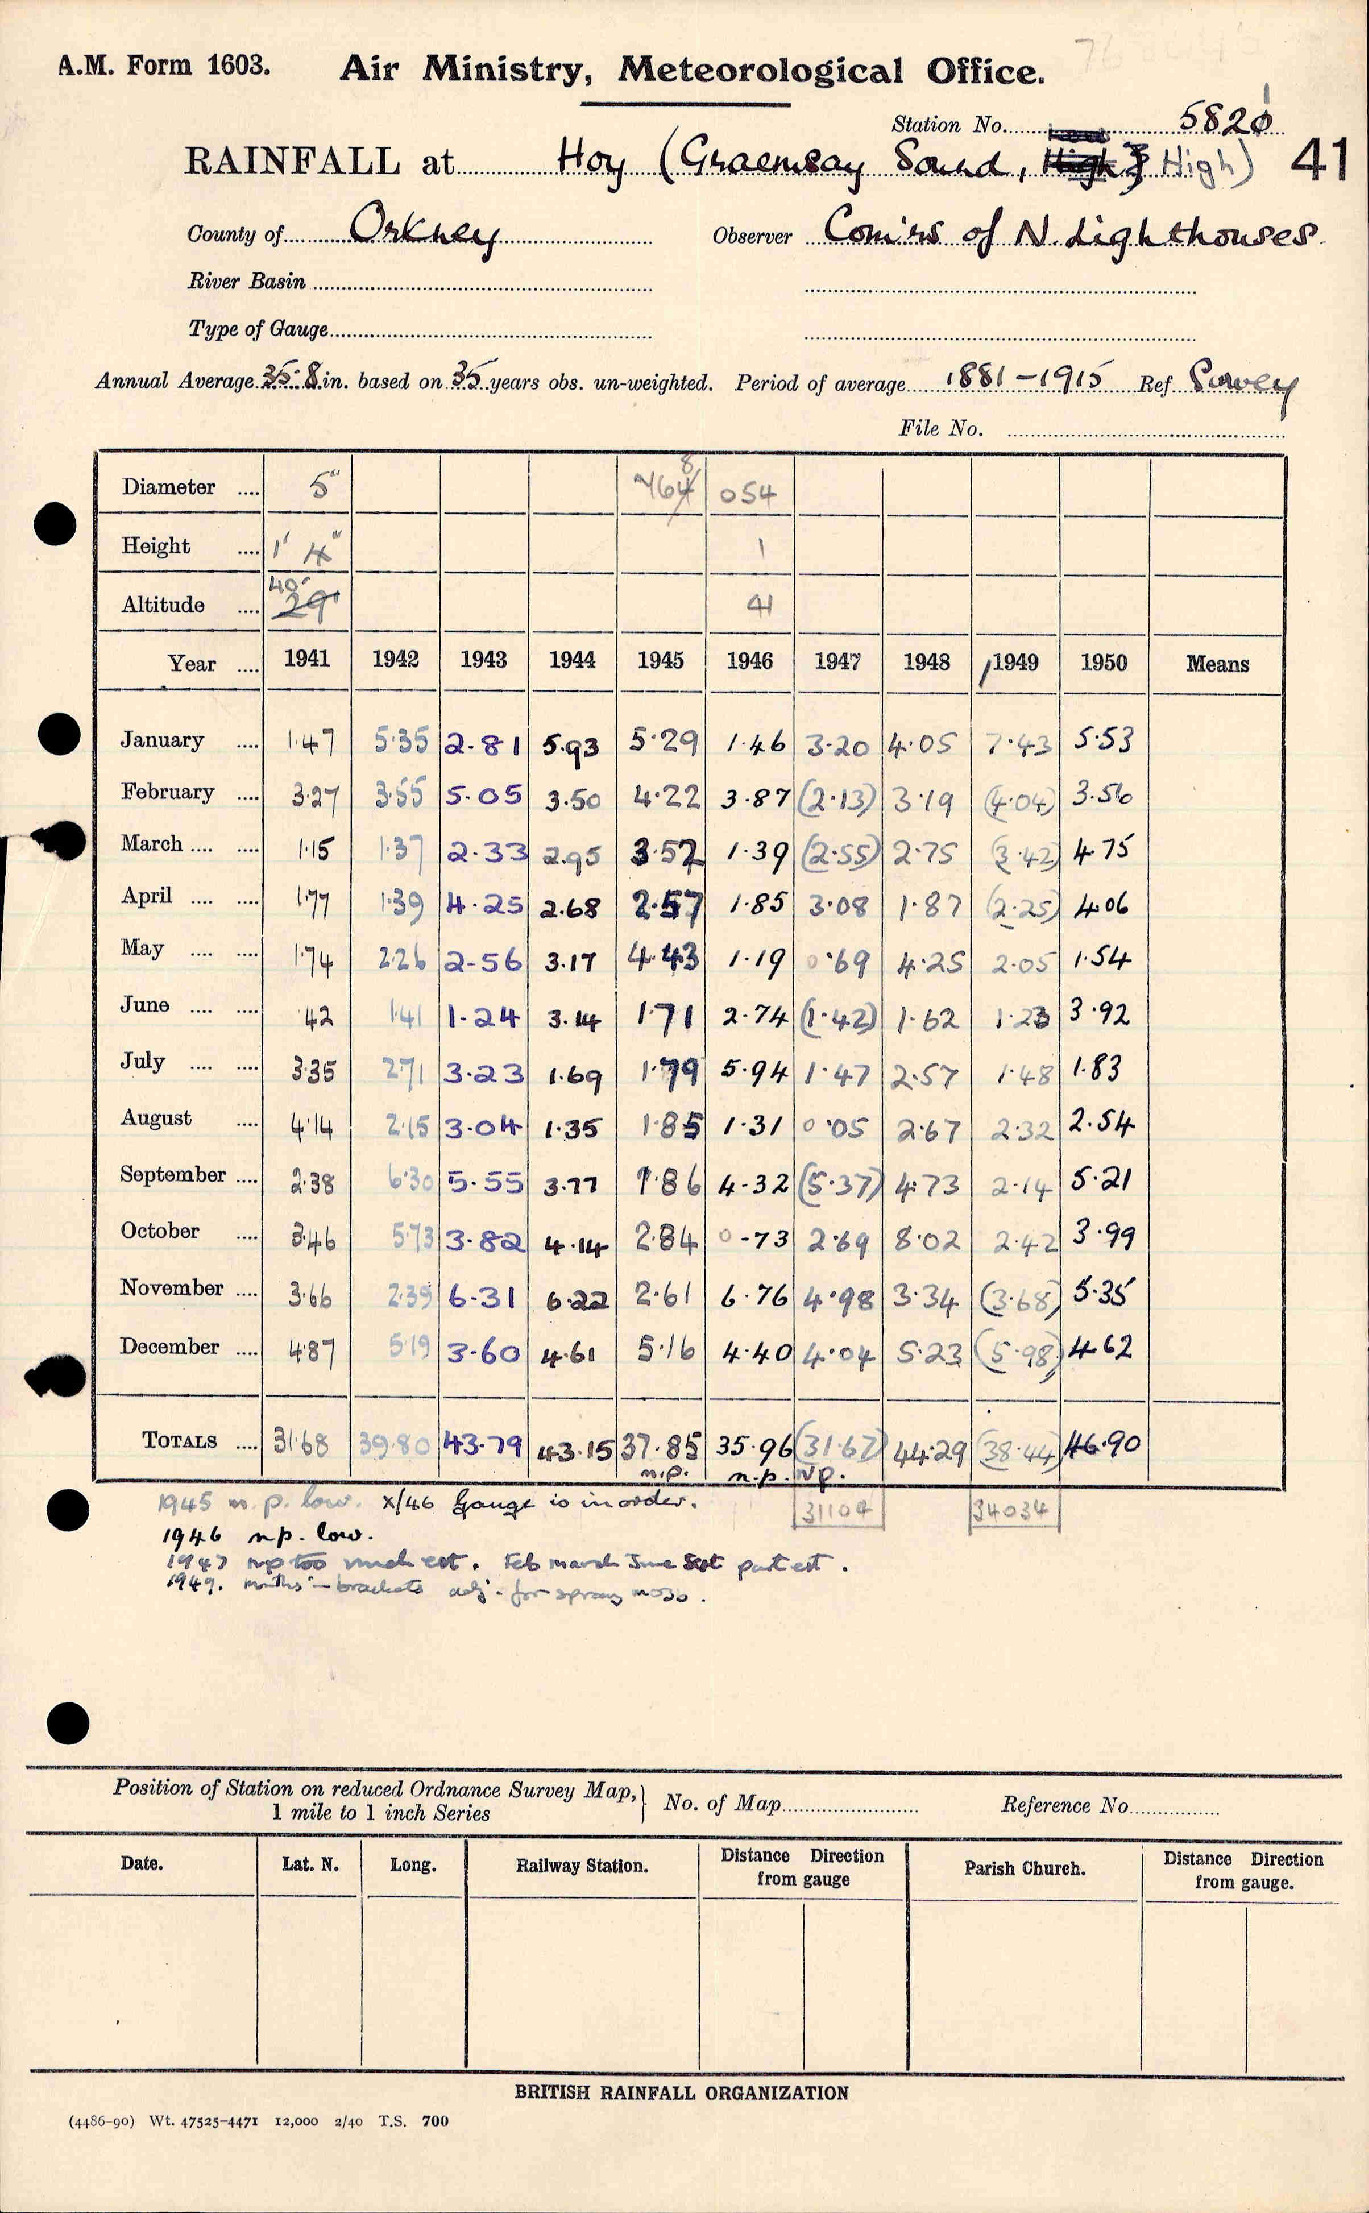 A.M. Form 1603. Air Ministry, Meteorological Office.
Station No. 5820 1
RAINFALL at Hoy (Graemsay Sound, High) 41
County of Orkney Observer Com'rs of N. Lighthouses
River Basin
Type of Gauge
Annual Average 35.8 in. based on 35 years obs. un-weighted. Period of average 1881-1915 Ref
File No.
Diameter .... 5" 054
Height .... 1' 4" 1
Altitude .... 40' 29' 41
Year .... 1941 1942 1943 1944 1945 1946 1947 1948 1949 1950 Means
January .... 1.47 5.35 2.81 5.93 5.29 1.46 3.20 4.05 7.43 5.53
February .... 3.27 3.55 5.05 3.50 4.22 3.87 (2.13) 3.19 (4.04) 3.56
March .... .... 1.15 1.37 2.33 2.95 3.52 1.39 (2.55) 2.75 (3.42) 4.75
April .... .... 1.77 1.39 4.25 2.68 2.57 1.85 3.08 1.87 (2.25) 4.06
May .... .... 1.74 2.26 2.56 3.17 4.43 1.19 0.69 4.25 2.05 1.54
June .... .... .42 1.41 1.24 3.14 1.71 2.74 (1.42) 1.62 1.23 3.92
July .... .... 3.35 2.71 3.23 1.69 1.79 5.94 1.47 2.57 1.48 1.83
August .... 4.14 2.15 3.04 1.35 1.85 1.31 0.05 2.67 2.32 2.54
September .... 2.38 6.30 5.55 3.77 1.86 4.32 (5.37) 4.73 2.14 5.21
October .... 3.46 5.73 3.82 4.14 2.84 0.73 2.69 8.02 2.42 3.99
November .... 3.66 2.39 6.31 6.22 2.61 6.76 4.98 3.34 (3.68) 5.35
December .... 4.87 5.19 3.60 4.61 5.16 4.40 4.04 5.23 (5.98) 4.62
TOTALS .... 31.68 39.80 43.79 43.15 37.85 35.96 (31.67) 44.29 (38.44) 46.90
n.p. n.p. N.p.
31104 34034
1945 n.p. low. X/46 Gauge is in order.
1946 n.p. low.
1947 n.p too much est. Feb March June Sept part est.
1949. months in brackets adj. for spray
Position of Station on reduced Ordnance Survey Map, 1 mile to 1 inch Series } No. of Map Reference No.
Date. Lat. N. Long. Railway Station. Distance Direction from gauge Parish Church. Distance Direction from gauge.
BRITISH RAINFALL ORGANIZATION
(4486-90) Wt. 47525-4471 12,000 2/40 T.S. 700